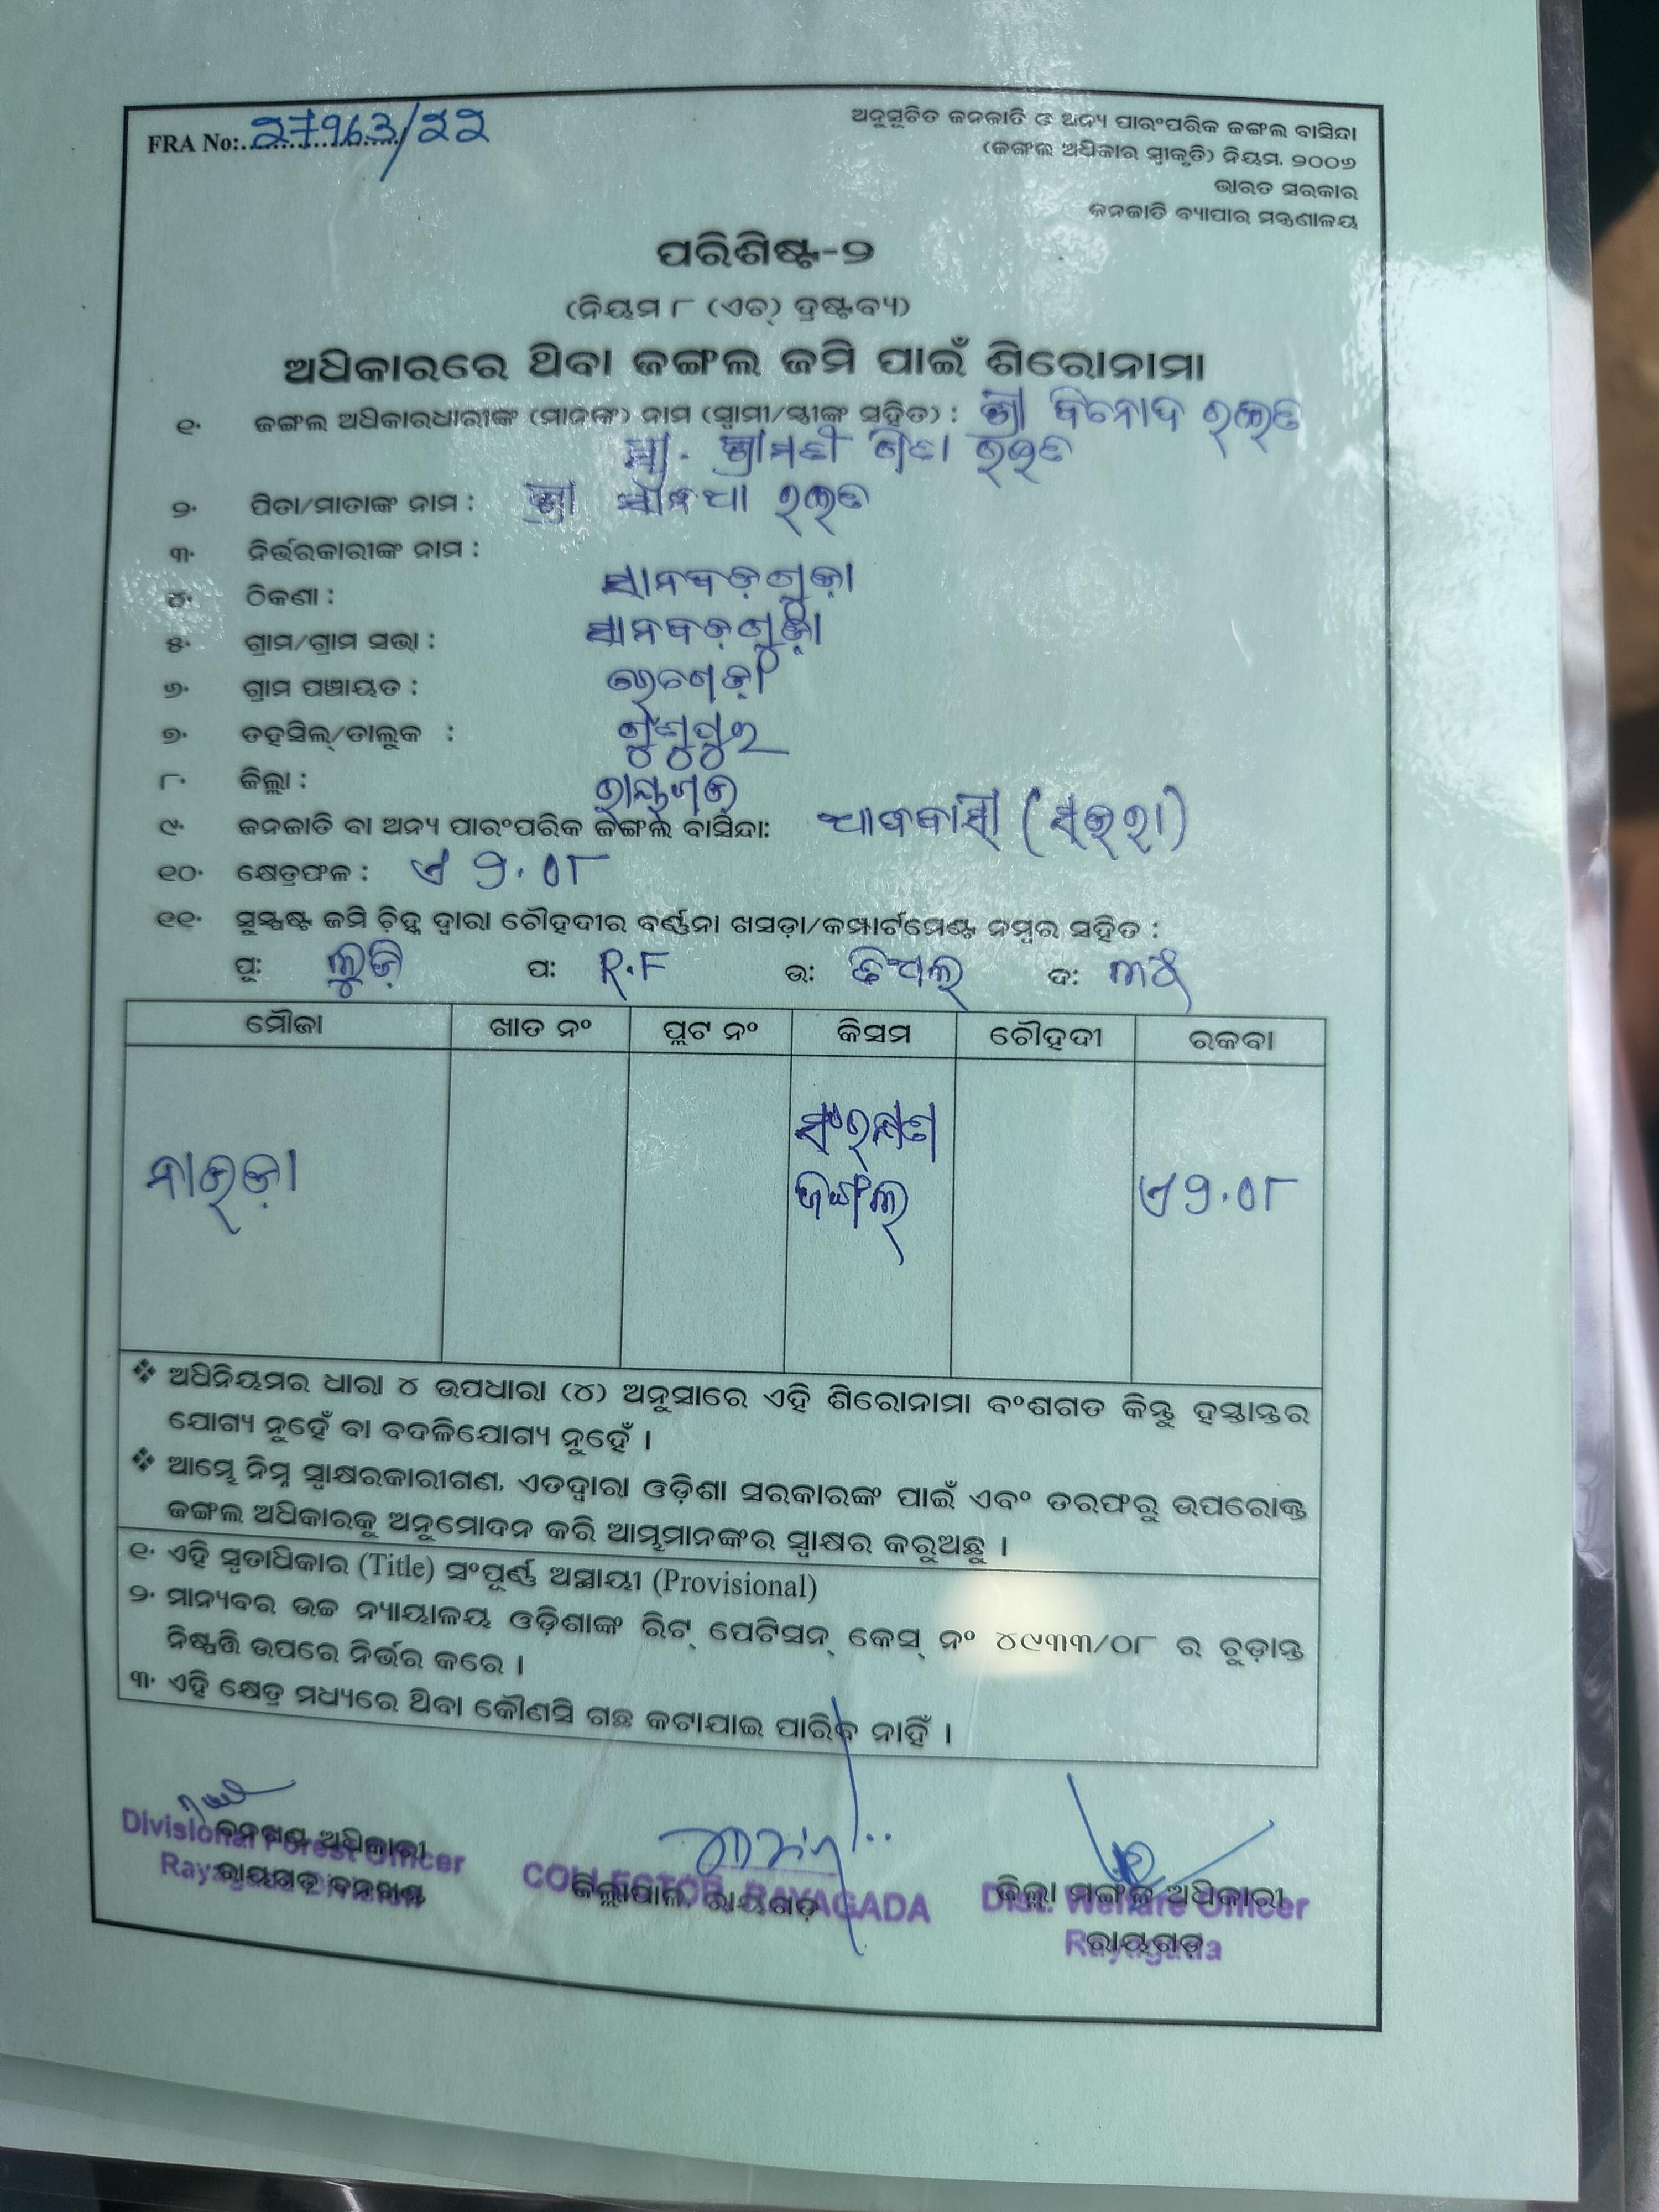 FRA No:. 27963/22
ଅନୁସୂଚିତ ଜନଜାତି ଓ ଅନ୍ୟ ପାରଂପରିକ ଜଙ୍ଗଲ ବାସିନ୍ଦା
(ଜଙ୍ଗଲ ଅଧିକାର ସ୍ୱୀକୃତି) ନିୟମ. ୨୦୦୬
ଭାରତ ସରକାର
ଜନଜାତି ବ୍ୟାପାର ମନ୍ତ୍ରଣାଳୟ
ପରିଶିଷ୍ଟ-୨
(ନିୟମ ୮ (ଏଚ୍) ଦ୍ରଷ୍ଟବ୍ୟ)
ଅଧିକାରରେ ଥିବା ଜଙ୍ଗଲ ଜମି ପାଇଁ ଶିରୋନାମା
୧. ଜଙ୍ଗଲ ଅଧିକାରଧାରୀଙ୍କ (ମାନଙ୍କ) ନାମ (ସ୍ୱାମୀ/ସ୍ତ୍ରୀଙ୍କ ସହିତ) : ଶ୍ରୀ ବିନୋଦ
ସ୍ତ୍ରୀ. ଶ୍ରୀମତୀ
୨. ପିତା/ମାତାଙ୍କ ନାମ : ଶ୍ରୀ
୩. ନିର୍ଭରକାରୀଙ୍କ ନାମ :
୪. ଠିକଣା : ସାନବଡ଼ଗୁଡ଼ା
୫. ଗ୍ରାମ/ଗ୍ରାମ ସଭା : ସାନବଡ଼ଗୁଡ଼ା
୬. ଗ୍ରାମ ପଞ୍ଚାୟତ :
୭. ତହସିଲ୍/ତାଲୁକ : ଗୁଣୁପୁର
୮. ଜିଲ୍ଲା : ରାୟଗଡ
୯. ଜନଜାତି ବା ଅନ୍ୟ ପାରଂପରିକ ଜଙ୍ଗଲ ବାସିନ୍ଦା: ଆଦିବାସୀ
୧୦. କ୍ଷେତ୍ରଫଳ : ଏ ୨.୦୮
୧୧. ସୁସ୍ପଷ୍ଟ ଜମି ଚିହ୍ନ ଦ୍ୱାରା ଚୌହଦୀର ବର୍ଣ୍ଣନା ଖସଡ଼ା/କମ୍ପାର୍ଟମେଣ୍ଟ ନମ୍ବର ସହିତ :
ପୂ: ପ: R.F ଉ: ଦ:
ମୌଜା ଖାତ ନଂ ପ୍ଲଟ ନଂ କିସମ ଚୌହଦୀ ରକବା
ସଂରକ୍ଷଣ
ଜଙ୍ଗଲ
ଏ ୨.୦୮
❖ ଅଧିନିୟମର ଧାରା ୪ ଉପଧାରା (୪) ଅନୁସାରେ ଏହି ଶିରୋନାମା ବଂଶଗତ କିନ୍ତୁ ହସ୍ତାନ୍ତର
ଯୋଗ୍ୟ ନୁହେଁ ବା ବଦଳିଯୋଗ୍ୟ ନୁହେଁ ।
❖ ଆମ୍ଭେ ନିମ୍ନ ସ୍ୱାକ୍ଷରକାରୀଗଣ, ଏତଦ୍ୱାରା ଓଡ଼ିଶା ସରକାରଙ୍କ ପାଇଁ ଏବଂ ତରଫରୁ ଉପରୋକ୍ତ
ଜଙ୍ଗଲ ଅଧିକାରକୁ ଅନୁମୋଦନ କରି ଆମ୍ଭମାନଙ୍କର ସ୍ୱାକ୍ଷର କରୁଅଛୁ ।
୧. ଏହି ସ୍ୱତାଧିକାର (Title) ସଂପୂର୍ଣ୍ଣ ଅସ୍ଥାୟୀ (Provisional)
୨. ମାନ୍ୟବର ଉଚ୍ଚ ନ୍ୟାୟାଳୟ ଓଡ଼ିଶାଙ୍କ ରିଟ୍ ପେଟିସନ୍ କେସ୍ ନଂ ୪୯୩୩/୦୮ ର ଚୁଡ଼ାନ୍ତ
ନିଷ୍ପତ୍ତି ଉପରେ ନିର୍ଭର କରେ ।
୩. ଏହି କ୍ଷେତ୍ର ମଧ୍ୟରେ ଥିବା କୌଣସି ଗଛ କଟାଯାଇ ପାରିବ ନାହିଁ ।
ବନଖଣ୍ଡ ଅଧିକାରୀ
ରାୟଗଡ଼ ବନଖଣ୍ଡ
Divisional Forest Officer
Rayagada Division
ଜିଲ୍ଲାପାଳ, ରାୟଗଡ଼
COLLECTOR, RAYAGADA
ଜିଲ୍ଲା ମଙ୍ଗଳ ଅଧିକାରୀ
ରାୟଗଡ଼
Dist. Welfare Officer
Rayagada